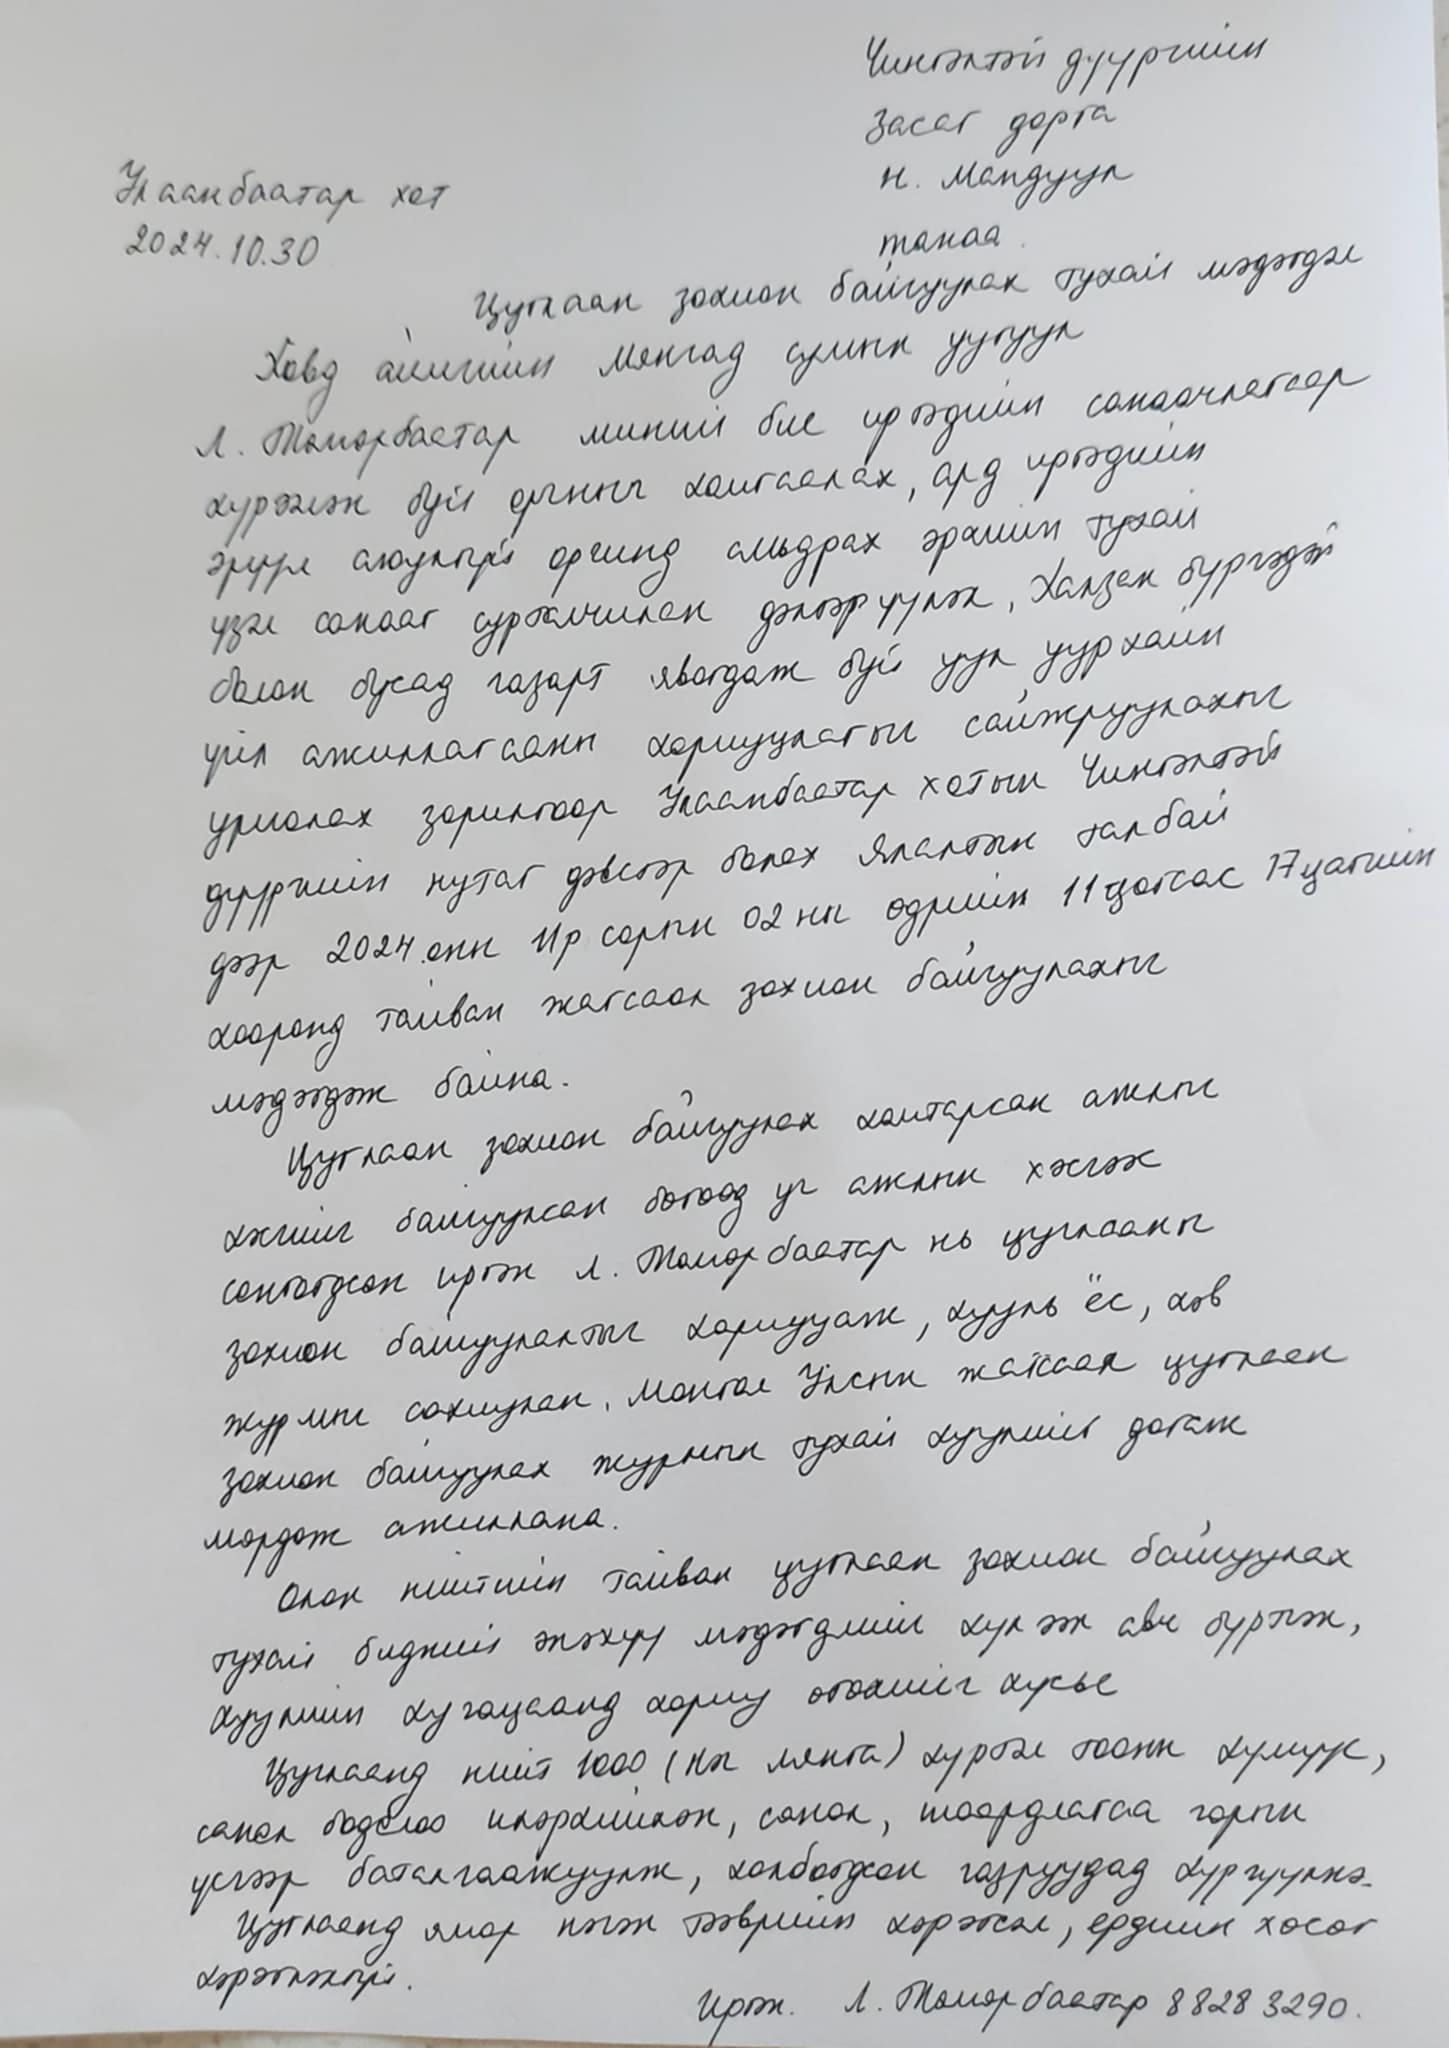 Чингэлтэй дүүргийн
Засаг дарга
Н. Мандуул
танаа
Улаанбаатар хот
2024.10.30
Цуглаан зохион байгуулах тухай мэдэгдэл
Ховд аймгийн Мянгад сумын уугуул
Л. Төмөрбаатар миний бие иргэдийн санаачлагаар
хүрээлэн буй орчныг хамгаалах, ард иргэдийн
эрүүл аюулгүй орчинд амьдрах эрхийн тухай
үзэл санааг сурталчилан дэлгэрүүлэх, Халзан бүргэдэй
болон бусад газарт явагдаж буй уул уурхайн
үйл ажиллагааны хариуцлагыг сайжруулахыг
уриалах зорилгоор Улаанбаатар хотын Чингэлтэй
дүүргийн нутаг дэвсгэр болох Ялалтын талбай
дээр 2024 оны 11р сарын 02 ны өдрийн 11 цагаас 17 цагийн
хооронд тайван жагсаал зохион байгуулахыг
мэдэгдэж байна.
Цуглаан зохион байгуулах хамтарсан ажлын
хэсгийг байгуулсан бөгөөд уг ажлын хэсгэх
сонгогдсон иргэн Л. Төмөрбаатар нь цуглааны
зохион байгуулалтыг хариуцаж, хууль ёс, хэв
журмыг сахиулан, Монгол Улсын жагсаал цуглаан
зохион байгуулах журмын тухай хуулийг дагаж
мөрдөж ажиллана.
Олон нийтийн тайван цуглаан зохион байгуулах
тухай бидний энэхүү мэдэгдлийг хүлээж авч бүртгэж,
хуулийн хугацаанд хариу өгөхийг хүсье
Цуглаанд нийт 1000 (нэг мянга) хүртэл тооны хүмүүс,
санал бодлоо илэрхийлэн, санал, шаардлагаа гарын
үсгээр баталгаажуулж, холбогдох газруудад хүргүүлнэ.
Цуглаанд ямар нэгэн тээврийн хэрэгсэл, ердийн хөсөг
хэрэглэхгүй.
Иргэн. Л. Төмөрбаатар 88283290.